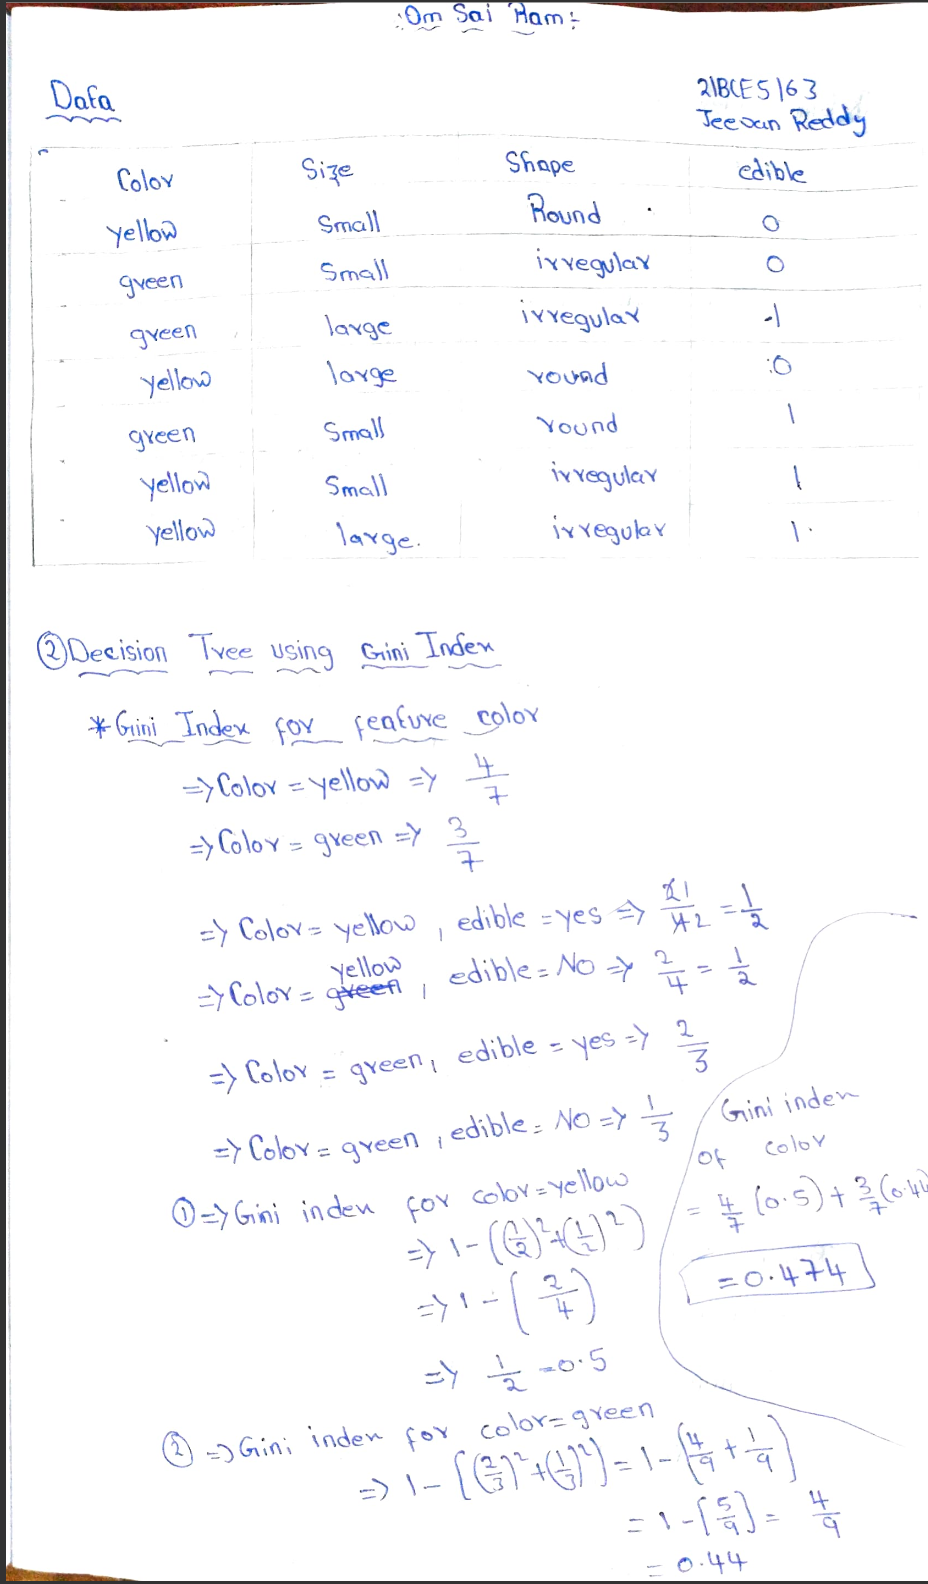 :Om Sai Ram:
Data
21BCE5163
Jeevan Reddy
Color Size Shape edible
yellow Small Round 0
green Small irregular 0
green large irregular 1
yellow large round 0
green Small round 1
yellow Small irregular 1
yellow large. irregular 1.
② Decision Tree using Gini Index
* Gini Index for feature color
=> Color = yellow => 4/7
=> Color = green => 3/7
=> Color = yellow, edible = yes => 2/4 = 1/2
=> Color = yellow, edible = No => 2/4 = 1/2
=> Color = green, edible = yes => 2/3
=> Color = green, edible = No => 1/3
① => Gini index for color = yellow
=> 1 - ((1/2)² + (1/2)²)
=> 1 - (2/4)
=> 1/2 = 0.5
② => Gini index for color = green
=> 1 - [(2/3)² + (1/3)²] = 1 - (4/9 + 1/9)
= 1 - [5/9] = 4/9
= 0.44
Gini index
of color
= 4/7 (0.5) + 3/7 (0.44
= 0.474